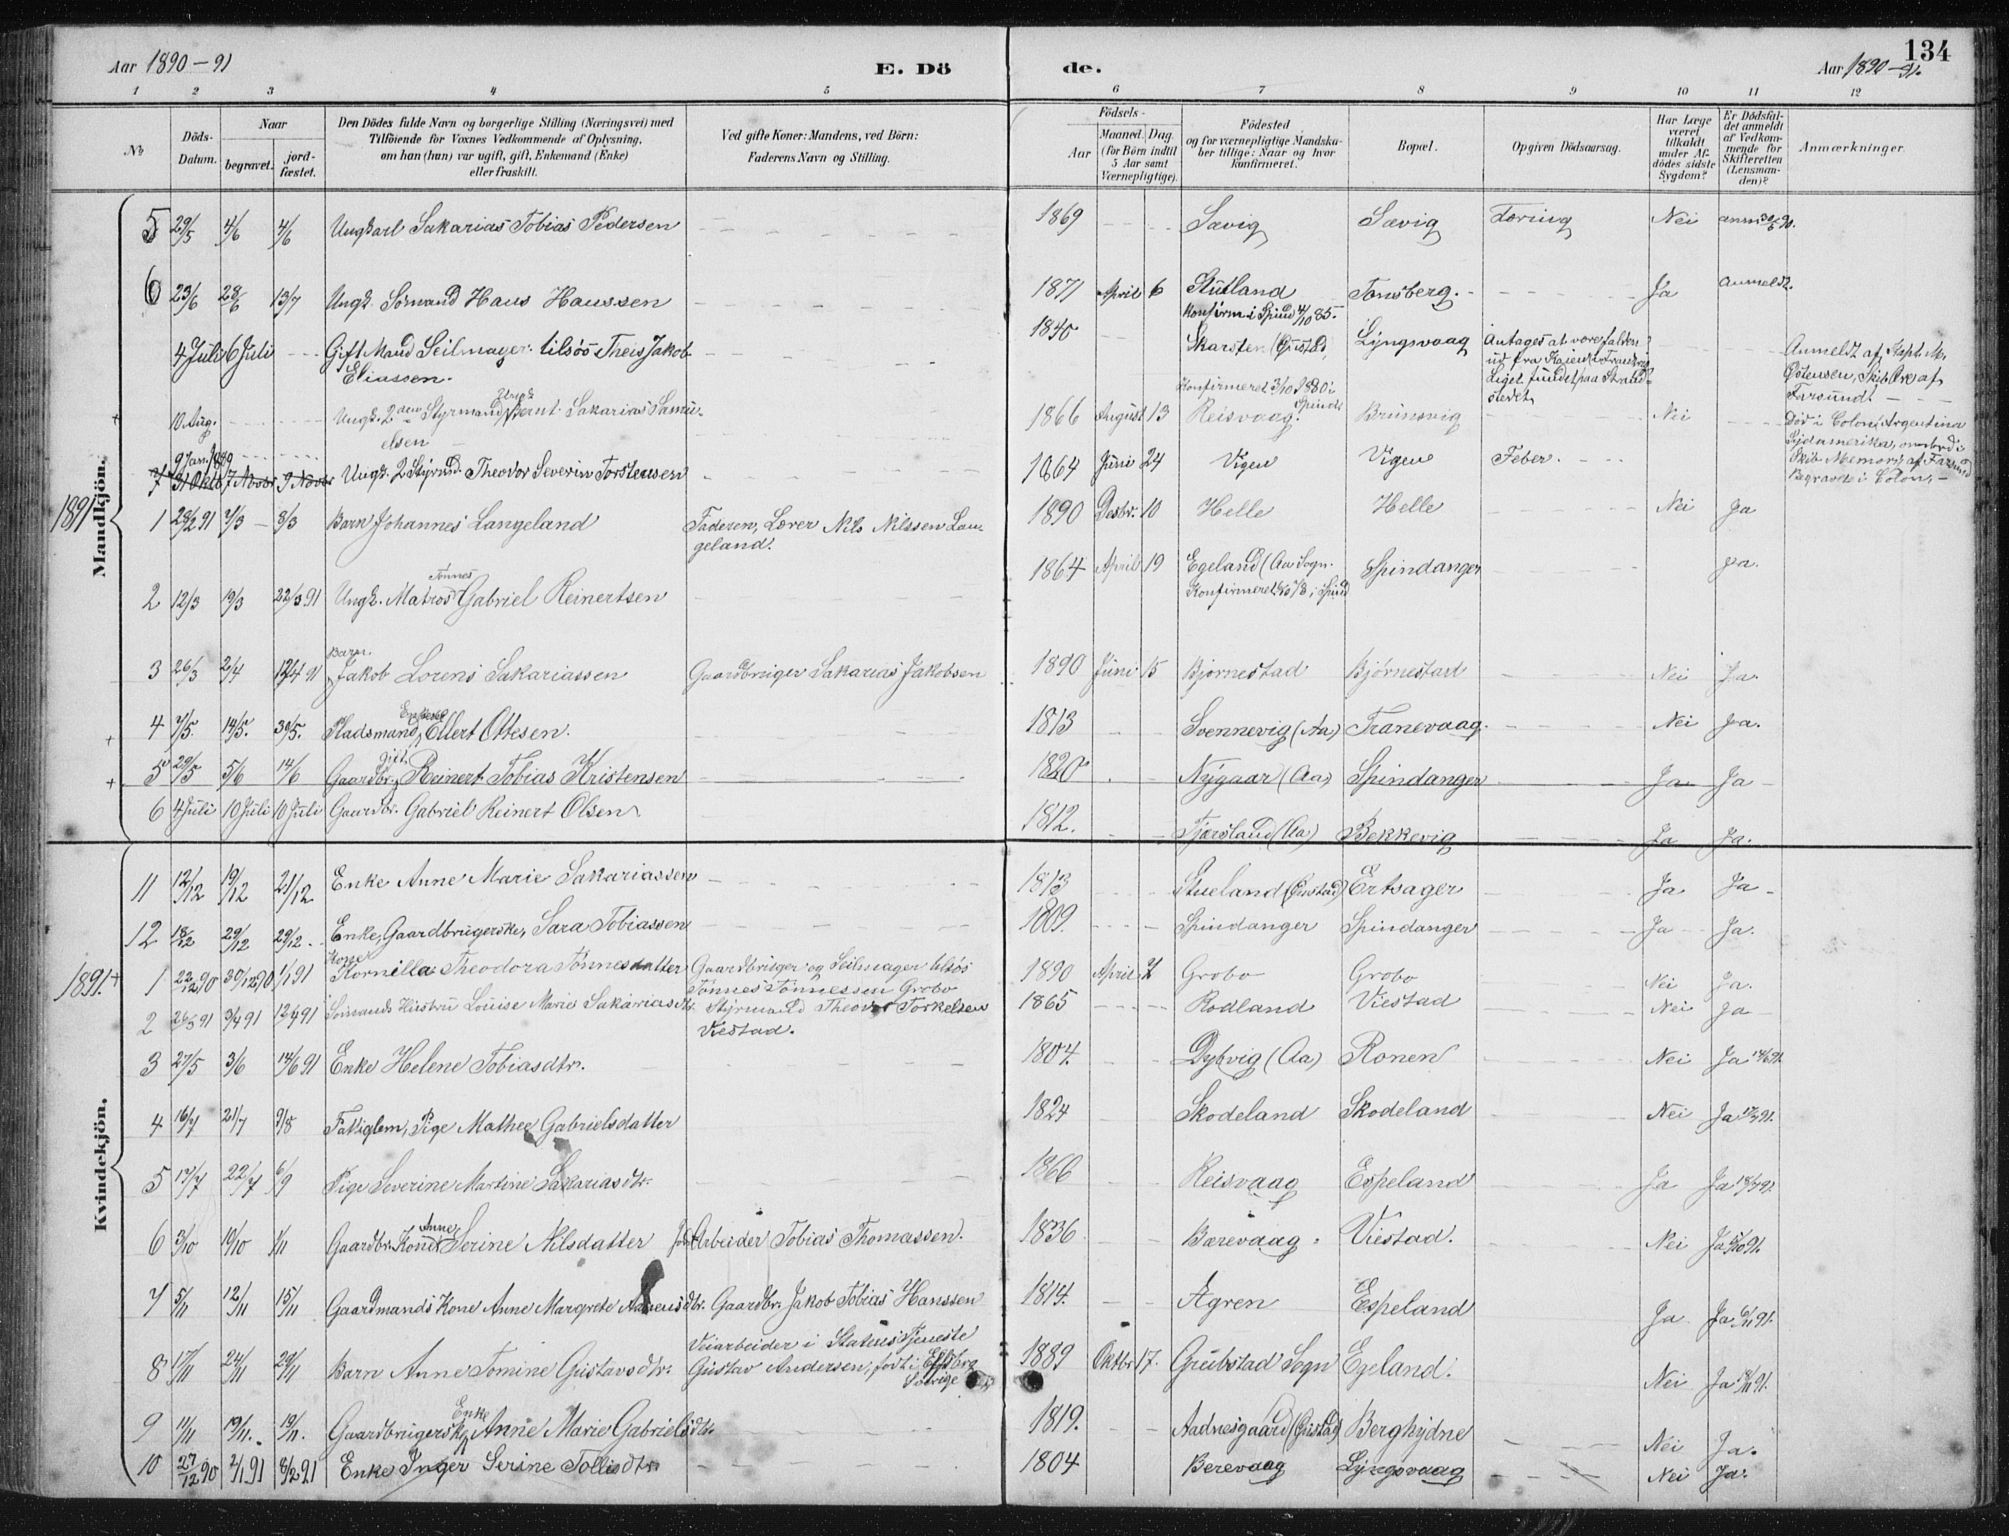 Aar 1890-91 E. Dö de. Aar 1890-91. 134
1 2 3 4 5 6 7 8 9 10 11 12
No
Döds-Datum.
Naar
begravet.
jord-fæstet.
Den Dödes fulde Navn og borgerlige Stilling (Næringsvei) med
Tilföiende for Voxnes Vedkommende af Oplysning,
om han (hun) var ugift, gift, Enkemand (Enke)
eller fraskilt.
Ved gifte Koner: Mandens, ved Börn:
Faderens Navn og Stilling.
Födsels-
Aar
Maaned. Dag.
(for Börn indtil
5 Aar samt
Værnepligtige).
Födested
og for værnepligtige Mandska-
ber tillige: Naar og hvor
konfirmeret.
Bopæl.
Opgiven Dödsaarsag.
Har Læge
været
tilkaldt
under Af-
dödes sidste
Sygdom?
Er Dödsfal-
det anmeldt
af Vedkom-
mende for
Skifteretten
(Lensman-
den)?
Anmærkninger.
Mandkjön.
5 29/5 4/6 4/6 Ungkarl Sakarias Tobias Pedersen 1869 Sævig Sævig Tæring Nei anm 30/5 90.
6 23/6 28/6 13/7 Ungk. Sømand Hans Hanssen 1871 April 6 Stutland Tønsberg. Ja Anmeldt.
Konfirm i Spind 4/10 85.
4 Juli 6 Juli Gift Mand Seilmager tilsøs Theis Jakob 1845 Skarsten (Gjustad) Lyngsvaag Antages at være falden
Eliassen. ud fra Kaien i
Liget fundet paa Strand-
stedet
Anmeldt af Kapt. M.
Østensen, Skib Øre af
Farsund.
Konfirmeret 3/10 1880 i Spind
10 Aug. Ungk. 2den Styrmand Bernt Sakarias Samu-
elsen 1866 August 13 Reisvaag Brunsvig Nei
9 Jan. 1889
7 31 Okto 7 Novbr 9 Novbr Ungk. 2 Styrmd. Theodor Severin Torstensen 1864 Juni 24 Vigen Vigen Feber.
Død i Colon, Argentina
Sydamerika, ombord i
Skib Memory af Farsund
Begravde i Colon.
1891
1 28/2 91 7/3 8/3 Barn Johannes Langeland Faderen, Lærer Nils Nilssen Lan-
geland. 1890 Desbr. 10 Helle Helle Nei Ja
2 12/3 19/3 22/3 91 Ungk. Matros Tønnes Gabriel Reinertsen 1864 April 19 Egeland (Aa Sogn. Spindanger Ja.
3 26/3 2/4 12/4 91 Barn Jakob Lorens Sakariassen Gaardbruger Sakarias Jakobsen 1890 Juni 15 Bjørnestad Bjørnestad Nei Ja.
4 7/5. 14/5. 30/5. Pladsmand, Enkemd Ellert Ottesen. 1813 Svennevig (Aa) Tranevaag. Nei Ja.
5 29/5 5/6 14/6 Gaardbr. Gift. Reinert Tobias Kristensen 1820 Nygaar (Aa) Spindanger Ja Ja
6 4 Juli 10 Juli 10 Juli Gaardbr. Gabriel Reinert Olsen 1812. Fjærsland (Aa) Bekkevig Ja Ja.
Kvindekjön.
11 12/12 19/12 21/12 Enke Anne Marie Sakariassen 1813 Stueland (Gjustad) Ertsager Ja Ja
12 18/12 29/12 29/12 Enke, Gaardbrugerske, Sara Tobiassen 1809. Spindanger Spindanger Ja Ja.
1891
1 22/12 90 30/12 90 1/1 91 Kornilla Theodora Tønnesdatter Gaardbruger og Seilmager tilsøs
Tønnes Tønnessen Grobo 1890 April 7 Grobo Grobo Nei Ja.
2 26/3 91 3/4 91 12/4 91 Sømands Hustru Louise Marie Sakariasdtr. Styrmand Theodor Torkelsen
Viestad. 1865 Rødland Viestad Nei Ja
3 27/5 3/6 14/6 91 Enke Helene Tobiasdtr. 1804. Dybvig (Aa) Ronen Nei Ja
4 16/7 21/7 9/8 Fattiglem, Pige Mathee Gabrielsdatter 1824 Skodeland Skodeland Nei Ja 17/7 91.
5 17/7 22/7 6/9 Pige Severine Martine Sakariasdtr. 1866 Reisvaag Espeland Ja Ja 18/7 91.
6 3/10 10/10 1/11 Gaardbr. Kone Anne Serine Nilsdatter Arbeider Tobias Thomassen. 1836 Barevaag Viestad. Nei Ja 5/10 91.
7 5/11 12/11 15/11 Gaardmands Kone Anne Margrete dtr. Gaardbr. Jakob Tobias Hanssen 1814. Agren Espeland Ja Ja 6/11 91.
8 17/11 24/11 29/11 Barn Anne Tomine Gustavsdtr. Veiarbeider i Statens Tjeneste
Gustav Andersen, født i
Sverige 1889 Oktbr. 17. Grubstad Sogn Egeland. Nei Ja 18/11 91.
9 11/11 19/11. 19/11. Gaardbrugerske Enke Anne Marie Gabrielsdtr. 1819. Aadnesgaard (Gjustad) Berghydne Nei Ja.
10 27/12 90 2/1 91 8/2 91 Enke Inger Serine Tollisdtr. 1804 Berevaag Lyngsvaag Nei Ja.